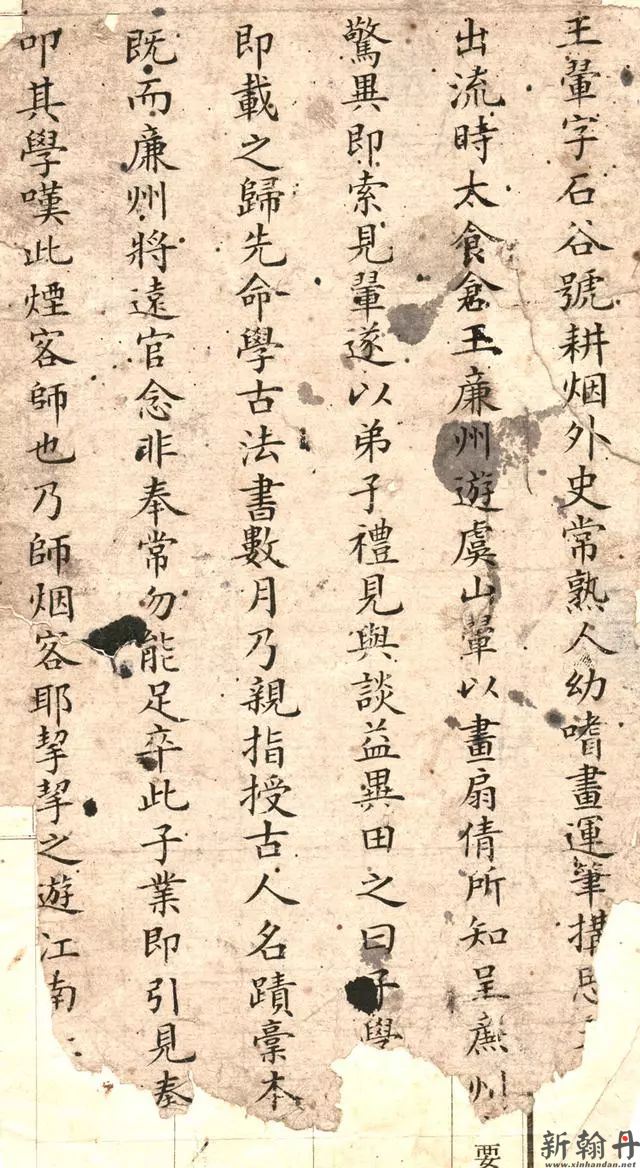 王翬字石谷號耕烟外史常熟人幼嗜畫運筆搆思
出流時太食倉王廉州遊虞山翬以畫扇倩所知呈廉州
驚異即索見翬遂以弟子禮見與談益異田之曰子學
即載之歸先命學古法書數月乃親指授古人名蹟稾本
既而廉州將遠官念非奉常勿能足卒此子業即引見奉
叩其學嘆此煙客師也乃師烟客耶挈挈之遊江南
要
新翰丹
www.xinhandan.net